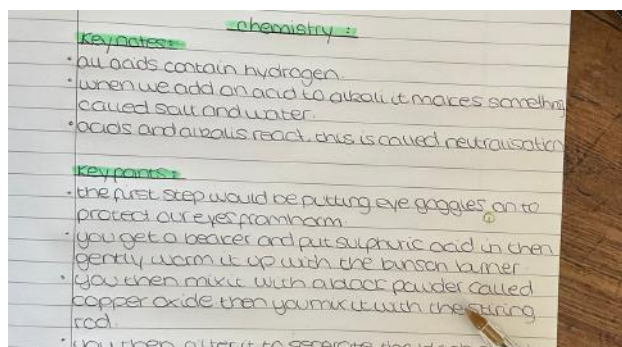 chemistry :
Key notes:
• all acids contain hydrogen.
• when we add an acid to alkali it makes something
called salt and water.
• acids and alkalis react. this is called neutralisation
Key points:
• the first step would be putting eye goggles on to
protect our eyes from harm.
• you get a beaker and put sulphuric acid in then
gently warm it up with the bunson burner.
• you then mix it with a black powder called
copper oxide then you mix it with the stiring
rod.
• you then filter it to